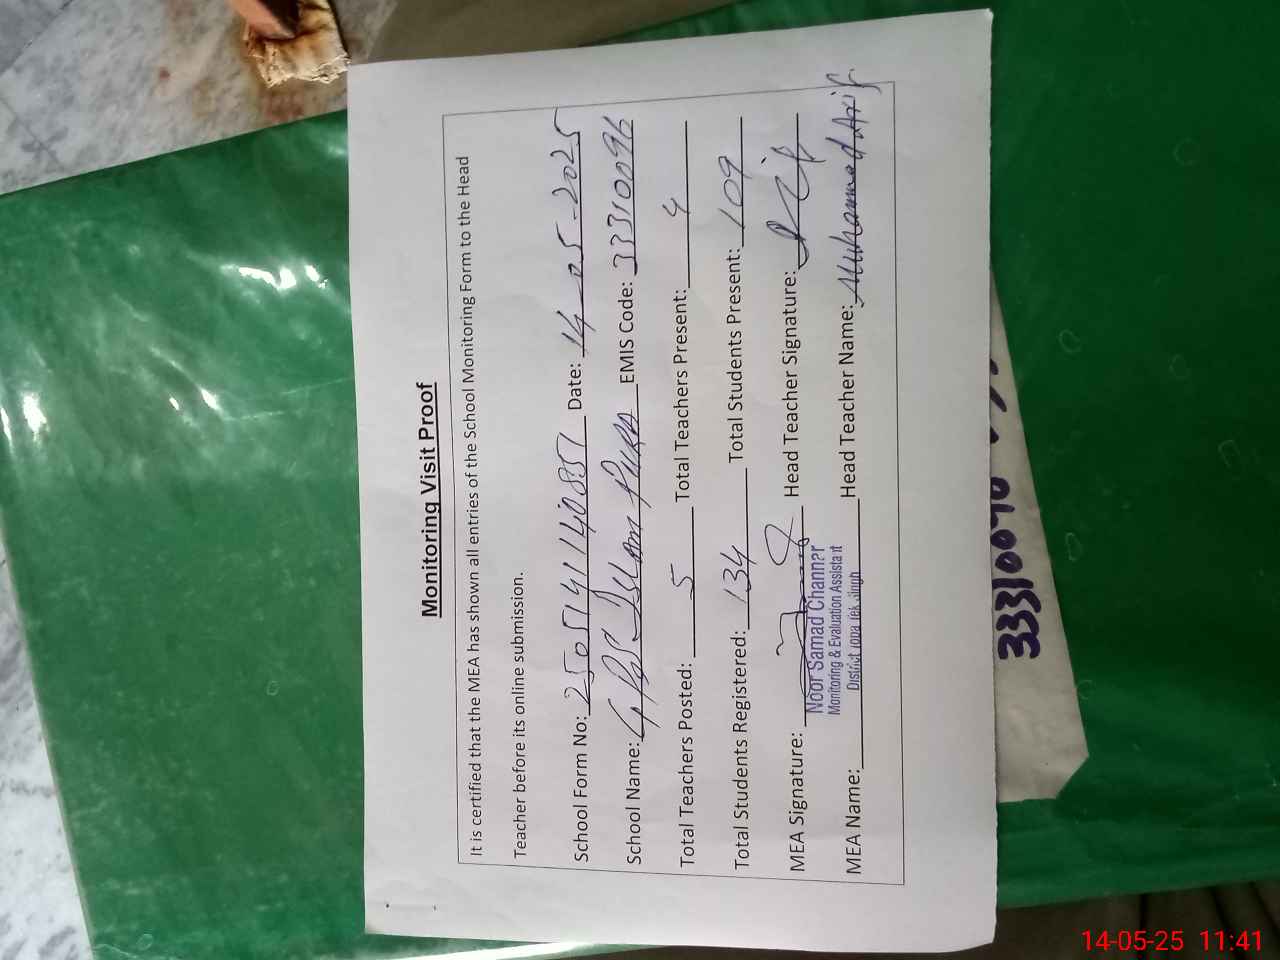 Monitoring Visit Proof
It is certified that the MEA has shown all entries of the School Monitoring Form to the Head
Teacher before its online submission.
School Form No: 2505141140857 Date: 14-05-2025
School Name: GPS Islam PURA EMIS Code: 33310096
Total Teachers Posted: 5 Total Teachers Present: 4
Total Students Registered: 134 Total Students Present: 109
MEA Signature: Head Teacher Signature:
Noor Samad Channer
Monitoring & Evaluation Assistant
District Toba Tek Singh
MEA Name: Head Teacher Name: Muhammad Asif
33310096
14-05-25 11:41